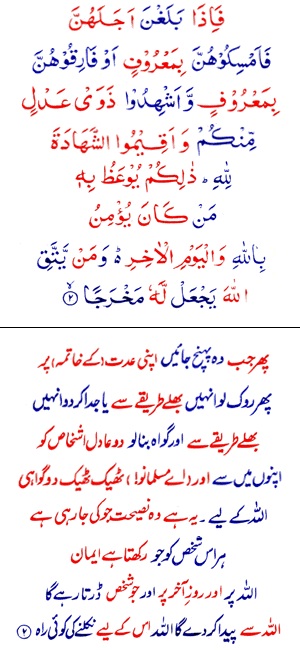 فَاِذَا بَلَغْنَ اَجَلَهُنَّ
فَاَمْسِكُوْهُنَّ بِمَعْرُوْفٍ اَوْ فَارِقُوْهُنَّ
بِمَعْرُوْفٍ وَّ اَشْهِدُوْا ذَوَىْ عَدْلٍ
مِّنْكُمْ وَ اَقِيْمُوا الشَّهَادَةَ
لِلّٰهِ ؕ ذٰلِكُمْ يُوْعَظُ بِهٖ
مَنْ كَانَ يُؤْمِنُ
بِاللّٰهِ وَالْيَوْمِ الْاٰخِرِ ۬ؕ وَمَنْ يَّتَّقِ
اللّٰهَ يَجْعَلْ لَّهٗ مَخْرَجًا ۙ﴿۲﴾
پھر جب وہ پہنچ جائیں اپنی عدت (کے خاتمہ) پر
پھر روک لو انہیں بھلے طریقے سے یا جدا کر دو انہیں
بھلے طریقے سے اور گواہ بنا لو دو عادل اشخاص کو
اپنوں میں سے اور (اے مسلمانو!) ٹھیک ٹھیک دو گواہی
اللہ کے لیے ۔ یہ ہے وہ نصیحت جو کی جا رہی ہے
ہر اس شخص کو جو رکھتا ہے ایمان
اللہ پر اور روزِ آخر پر اور جو شخص ڈرتا رہے گا
اللہ سے پیدا کر دے گا اللہ اس کے لیے نکلنے کی کوئی راہ ﴿۲﴾